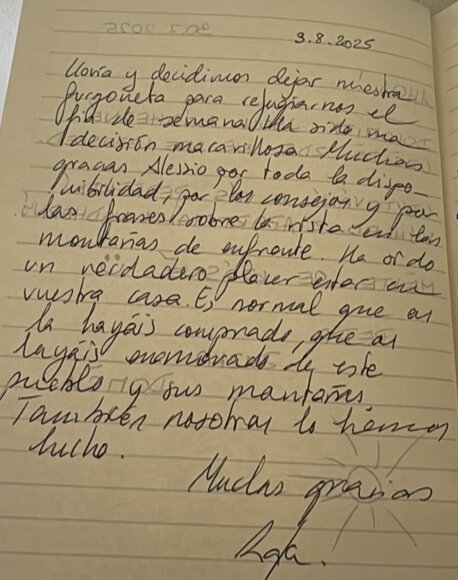 3.8.2025
llovía y decidimos dejar nuestra
furgoneta para refugiarnos el
fin de semana. Ha sido una
decisión maravillosa. Muchas
gracias Alessio por toda la dispo
nibilidad, por los consejos y por
las frases sobre la vista en las
montañas de enfrente. Ha sido
un verdadero placer estar en
vuestra casa. Es normal que os
la hayáis comprado, que os
hayáis enamorado de este
pueblo y sus montañas.
También nosotras lo hemos
hecho.
Muchas gracias